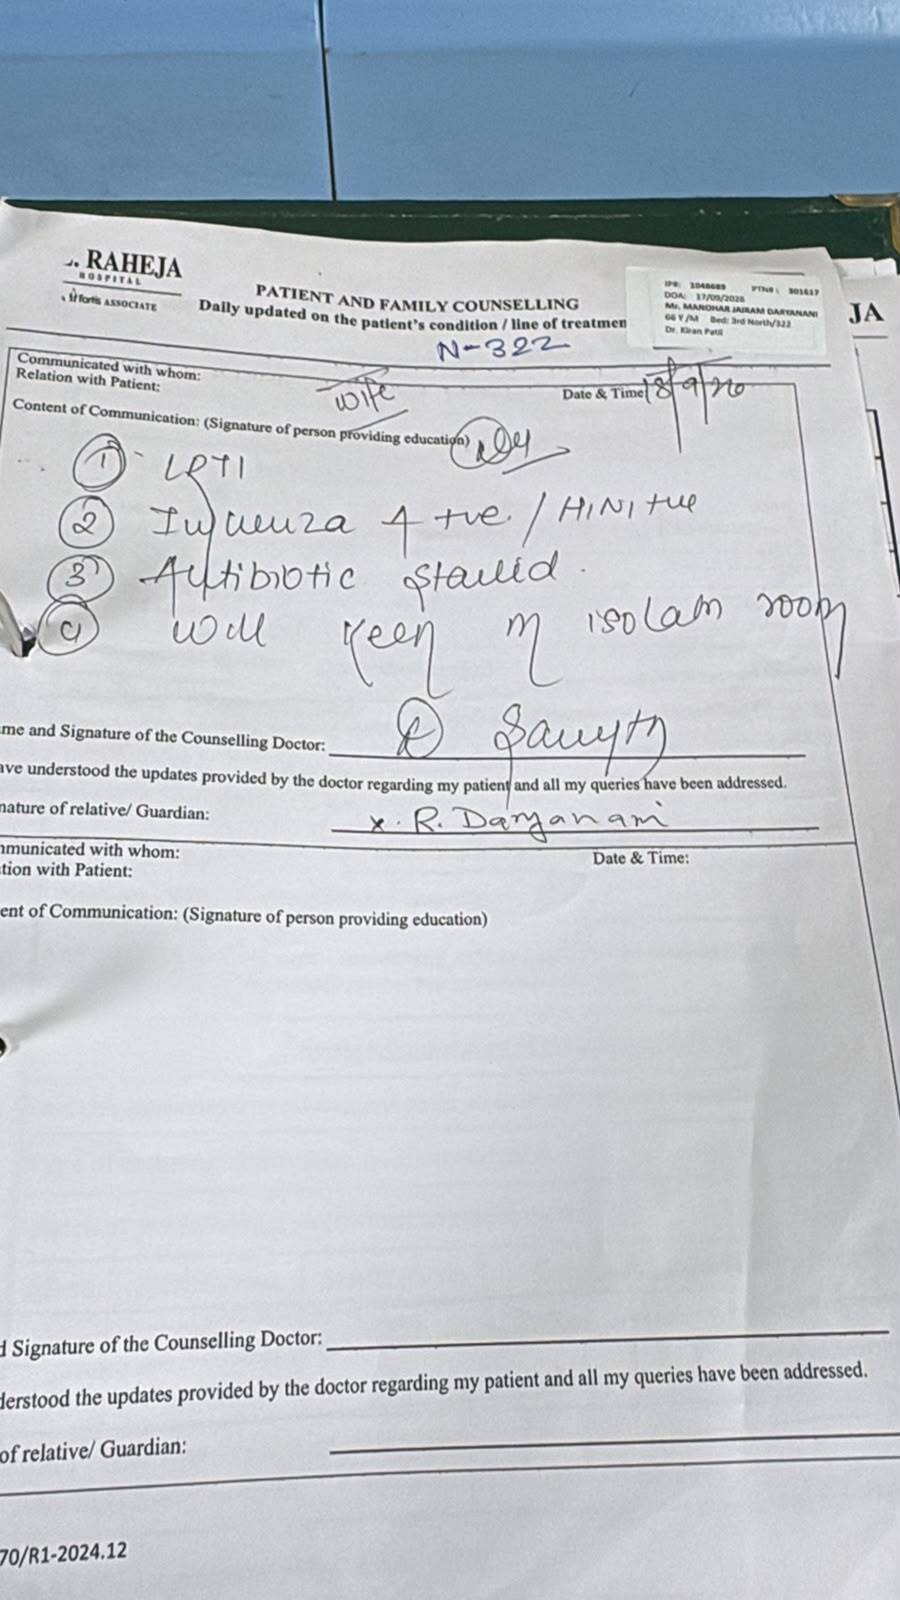 RAHEJA
HOSPITAL
fortis ASSOCIATE
PATIENT AND FAMILY COUNSELLING
Daily updated on the patient's condition / line of treatmen
IP#: 1048689 PTN#: 301617
DOA: 17/09/2026
Mr. MANOHAR JAIRAM DARYANANI
66 Y/M Bed: 3rd North/322
Dr. Kiran Patil
JA
N-322
Communicated with whom:
Relation with Patient: wife
Date & Time: 18/9/26
Content of Communication: (Signature of person providing education)
① LRTI
② Influenza A +ve / H1N1 +ve
③ Antibiotic started.
④ Will keep in isolatn room
me and Signature of the Counselling Doctor:
ave understood the updates provided by the doctor regarding my patient and all my queries have been addressed.
nature of relative/ Guardian: x. R. Daryanani
mmunicated with whom:
Date & Time:
tion with Patient:
ent of Communication: (Signature of person providing education)
d Signature of the Counselling Doctor:
derstood the updates provided by the doctor regarding my patient and all my queries have been addressed.
of relative/ Guardian:
70/R1-2024.12